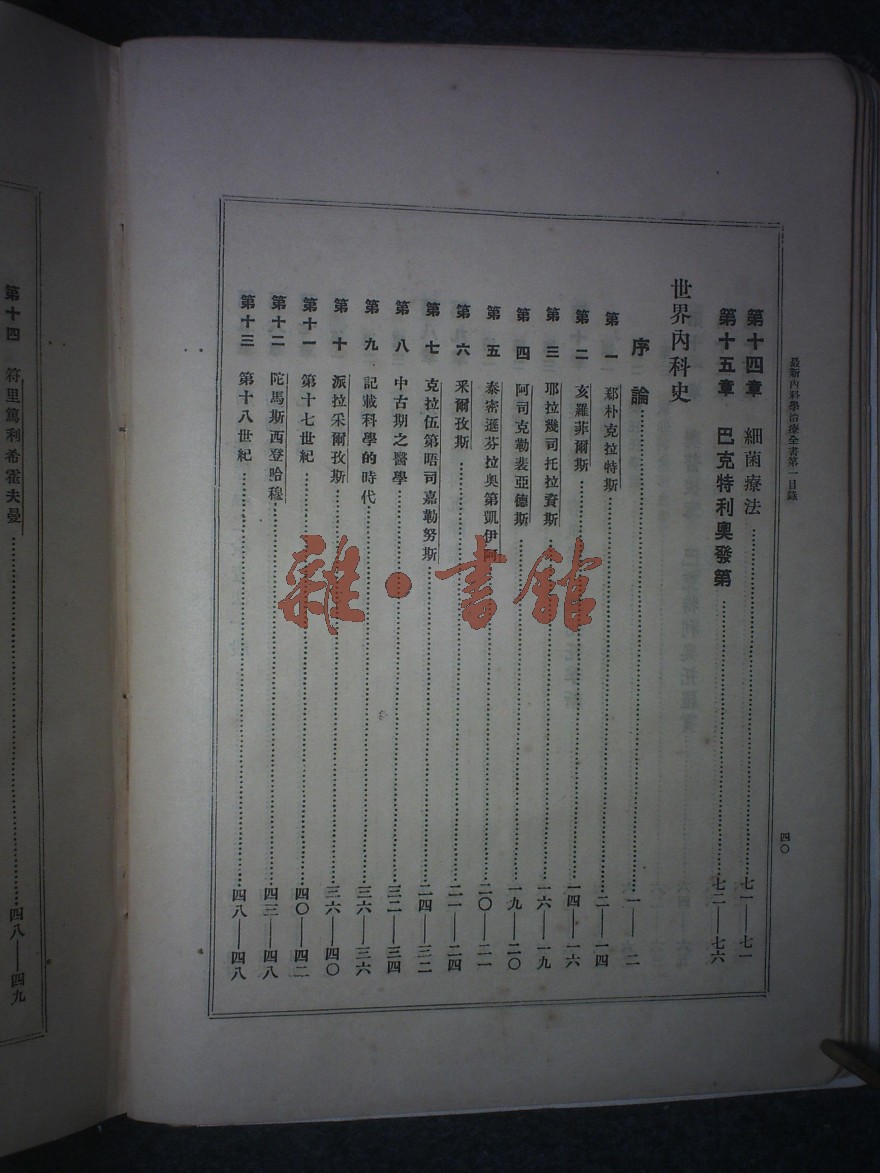 最新內科學治療全書第一目錄
四〇
第十四章 細菌療法……七一—七一
第十五章 巴克特利奧發第……七二—七六
世界內科史
序論……一—二
第一 郄朴克拉特斯……二—一四
第二 亥羅菲爾斯……一四—一六
第三 耶拉幾司托拉賚斯……一六—一九
第四 阿司克勒裴亞德斯……一九—二〇
第五 泰密遜芬拉奧第凱伊阿……二〇—二一
第六 釆爾孜斯……二一—二四
第七 克拉伍第唔司嘉勒努斯……二四—三二
第八 中古期之醫學……三二—三四
第九 記載科學的時代……三六—三六
第十 派拉釆爾孜斯……三六—四〇
第十一 第十七世紀……四〇—四二
第十二 陀馬斯西登哈穆……四三—四八
第十三 第十八世紀……四八—四八
第十四 符里篤利希霍夫曼……四八—四九
雜·書舘